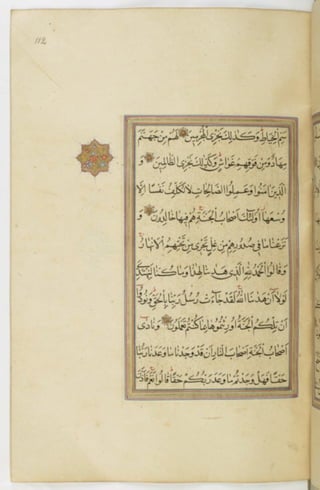 112
سَمِّ الْخِيَاطِ وَكَذٰلِكَ نَجْزِي الْمُجْرِمِينَ لَهُمْ مِنْ جَهَنَّمَ
مِهَادٌ وَمِنْ فَوْقِهِمْ غَوَاشٍ وَكَذٰلِكَ نَجْزِي الظَّالِمِينَ وَ
الَّذِينَ اٰمَنُوا وَعَمِلُوا الصَّالِحَاتِ لَا نُكَلِّفُ نَفْسًا اِلَّا
وُسْعَهَا اُولٰئِكَ اَصْحَابُ الْجَنَّةِ هُمْ فِيهَا خَالِدُونَ وَ
نَزَعْنَا مَا فِي صُدُورِهِمْ مِنْ غِلٍّ تَجْرِي مِنْ تَحْتِهِمُ الْاَنْهَارُ
وَقَالُوا الْحَمْدُ لِلّٰهِ الَّذِي هَدٰينَا لِهٰذَا وَمَا كُنَّا لِنَهْتَدِيَ
لَوْلَا اَنْ هَدٰينَا اللّٰهُ لَقَدْ جَاءَتْ رُسُلُ رَبِّنَا بِالْحَقِّ وَنُودُوا
اَنْ تِلْكُمُ الْجَنَّةُ اُورِثْتُمُوهَا بِمَا كُنْتُمْ تَعْمَلُونَ وَنَادٰى
اَصْحَابُ الْجَنَّةِ اَصْحَابَ النَّارِ اَنْ قَدْ وَجَدْنَا مَا وَعَدَنَا رَبُّنَا
حَقًّا فَهَلْ وَجَدْتُمْ مَا وَعَدَ رَبُّكُمْ حَقًّا قَالُوا نَعَمْ فَاَذَّنَ